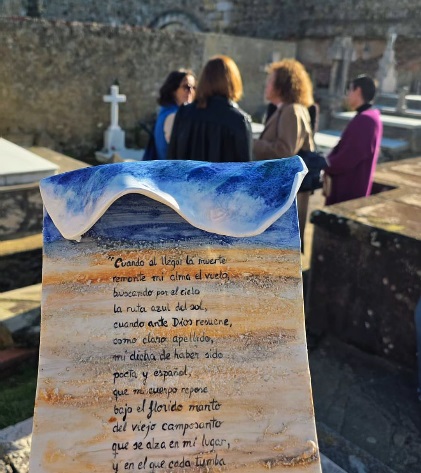 "Cuando al llegar la muerte
remonte mi alma el vuelo,
buscando por el cielo
la ruta azul del sol,
cuando ante Dios resuene,
como claro apellido,
mi dicha de haber sido
poeta y español,
que mi cuerpo repose
bajo el florido manto
del viejo camposanto
que se alza en mi lugar,
y en el que cada tumba